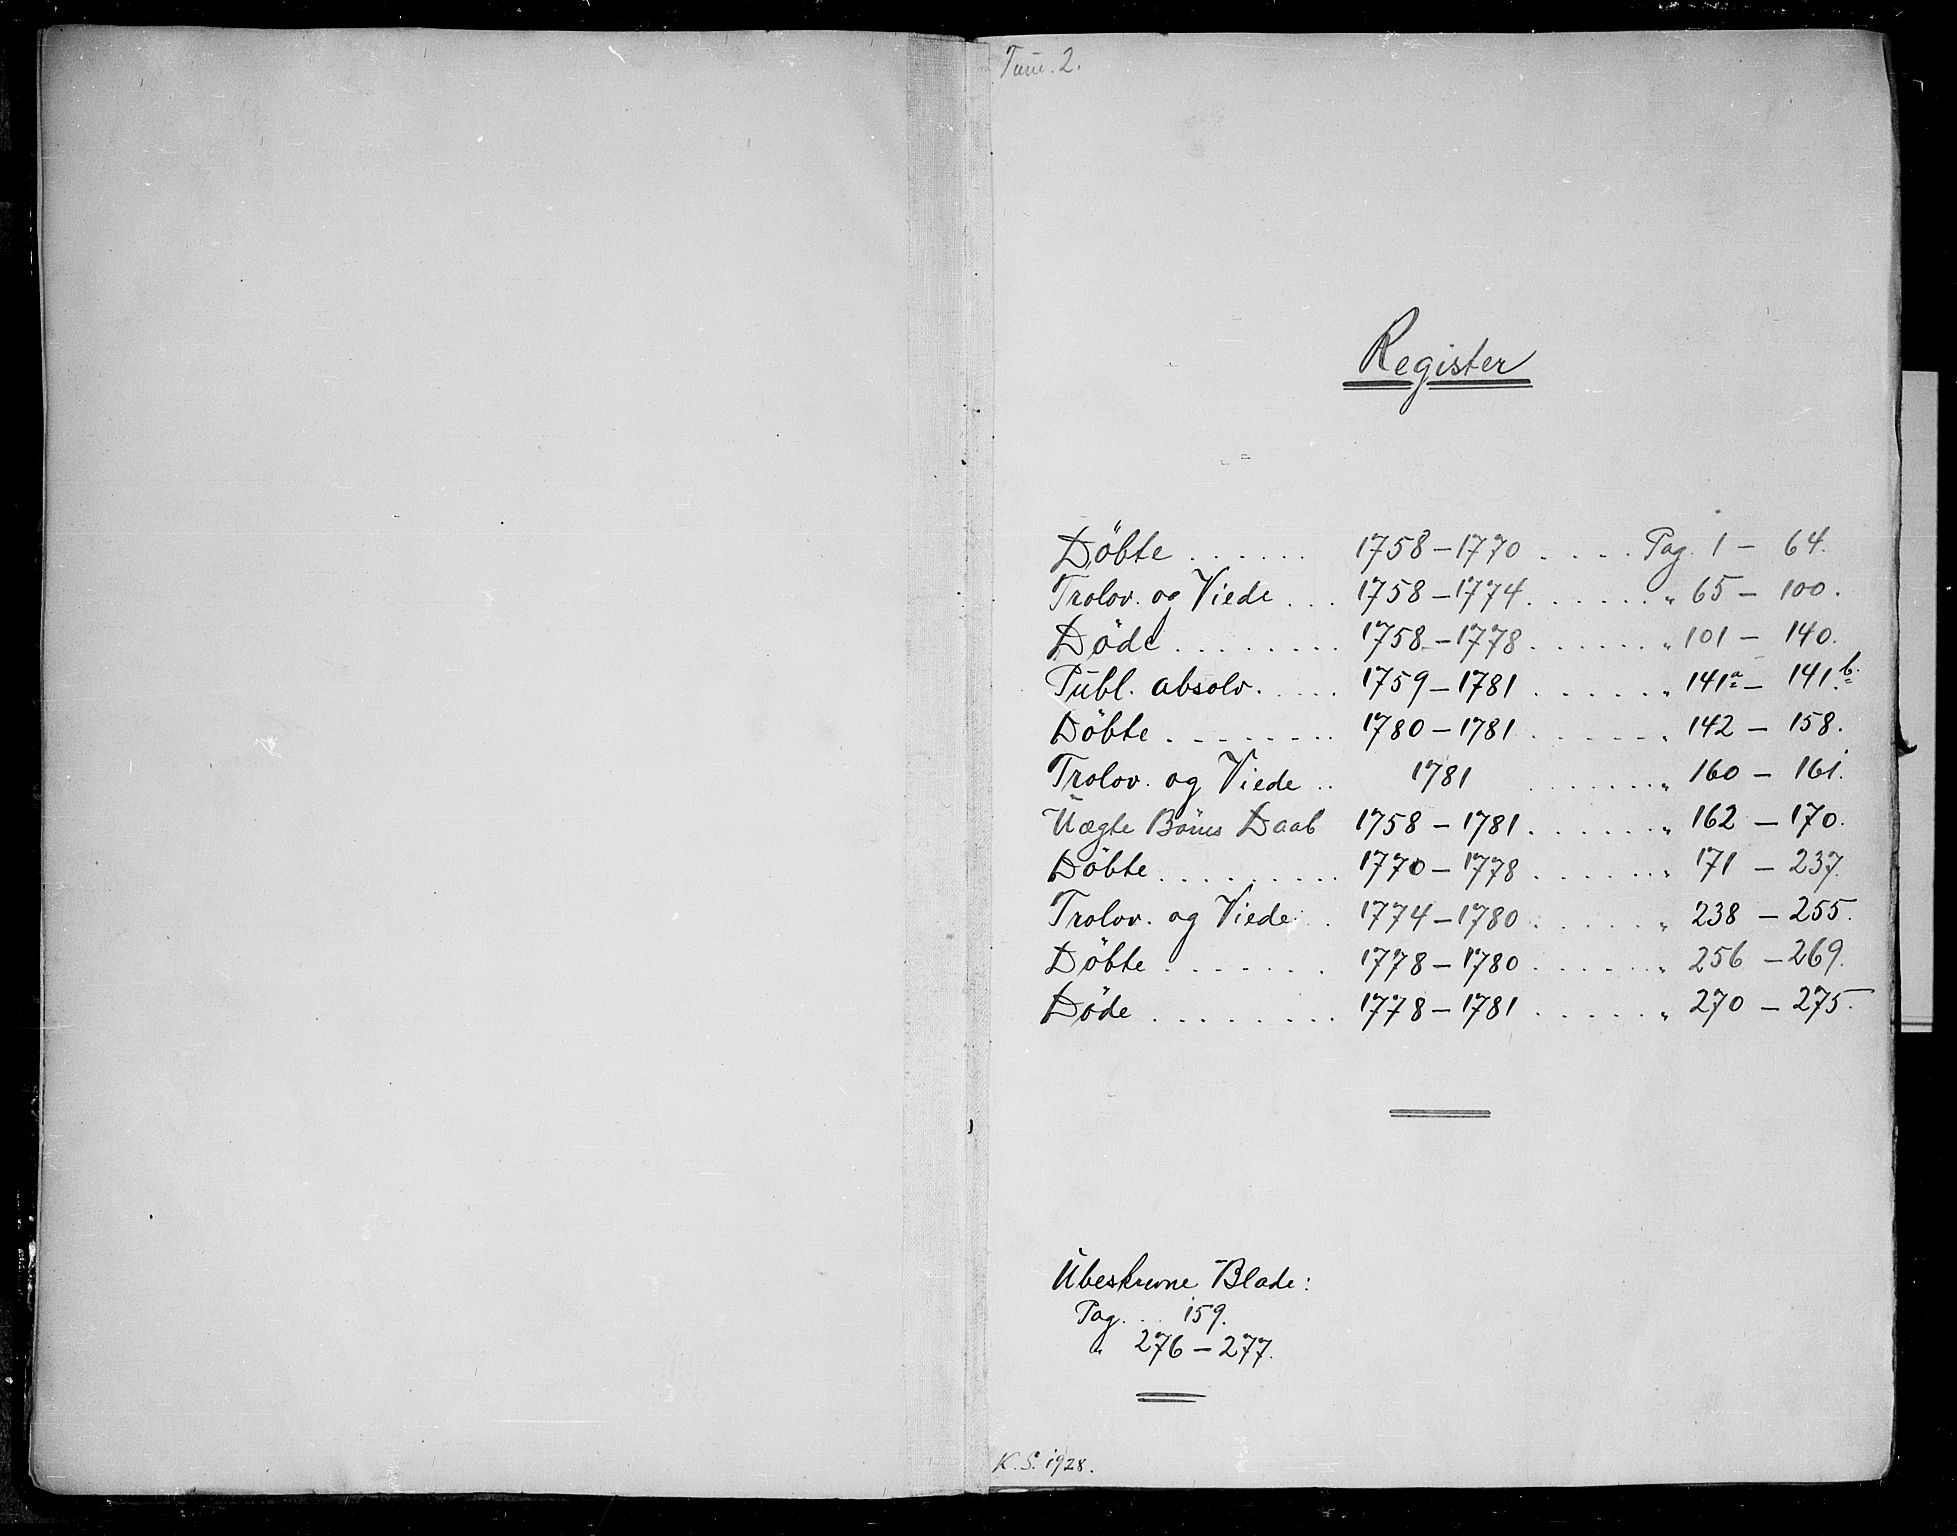 Tune. 2.
Register
Döbte ...... 1758 – 1770 .... Pag. 1 – 64.
Trolov. og Viede ... 1758 – 1774 ...... „ 65 – 100.
Döde ........ 1758 – 1778 ...... „ 101 – 140.
Publ. absolv. .... 1759 – 1781 ...... „ 141a – 141b.
Döbte ........ 1780 – 1781 ...... „ 142 – 158.
Trolov. og Viede .. 1781 ....... „ 160 – 161.
Uægte Börns Daab 1758 – 1781 ...... „ 162 – 170.
Döbte ......... 1770 – 1778 ...... „ 171 – 237.
Trolov. og Viede .. 1774 – 1780 ..... „ 238 – 255.
Döbte ....... 1778 – 1780 ...... „ 256 – 269.
Döde ......... 1778 – 1781 ...... „ 270 – 275.
Ubeskrevne Blade:
Pag. .. 159.
„ 276 – 277.
K. S. 1928.